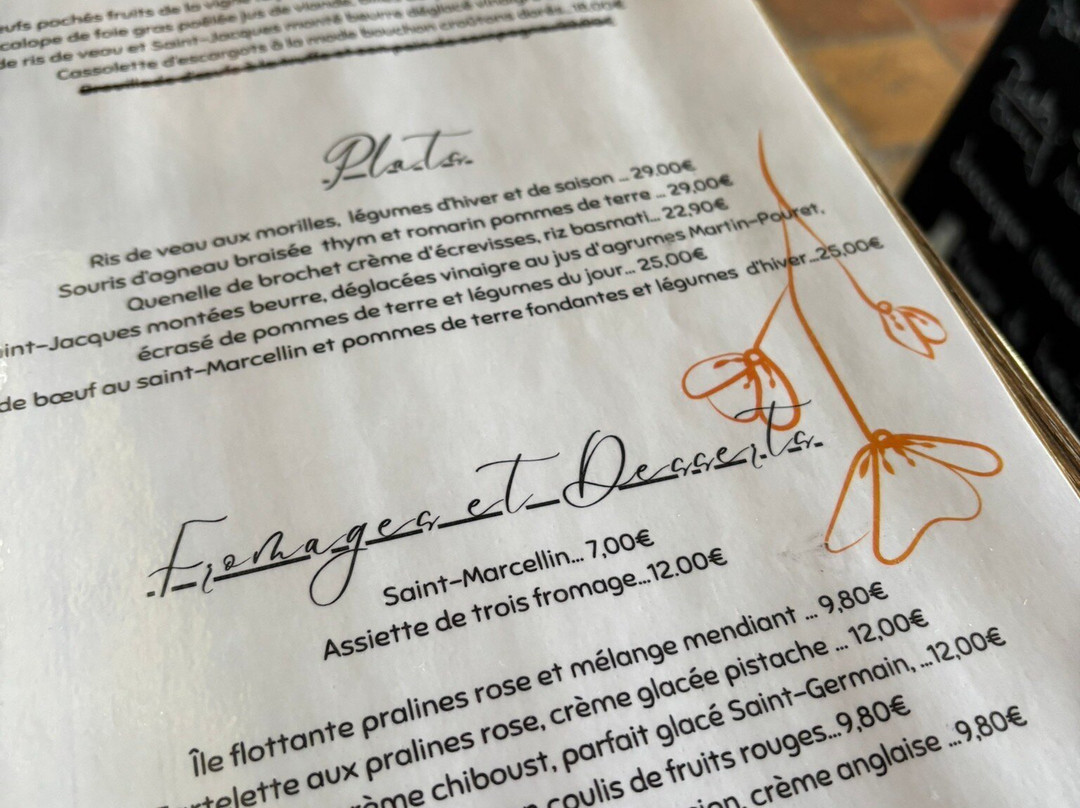 pochés fruits de la vigne
calope de foie gras poêlée jus de viande,
de ris de veau et Saint-Jacques monté beurre déglacé
Cassolette d'escargots à la mode bouchon croûtons dorés.. 18.00€
Plats
Ris de veau aux morilles, légumes d'hiver et de saison ... 29,00€
Souris d'agneau braisée thym et romarin pommes de terre ... 29,00€
Quenelle de brochet crème d'écrevisses, riz basmati... 22,90€
int-Jacques montées beurre, déglacées vinaigre au jus d'agrumes Martin-Pouret,
écrasé de pommes de terre et légumes du jour... 25,00€
de bœuf au saint-Marcellin et pommes de terre fondantes et légumes d'hiver...25,00€
Fromages et Desserts
Saint-Marcellin... 7,00€
Assiette de trois fromage...12.00€
Île flottante pralines rose et mélange mendiant ... 9,80€
rtelette aux pralines rose, crème glacée pistache ... 12,00€
ème chiboust, parfait glacé Saint-Germain, ...12,00€
coulis de fruits rouges...9,80€
crème anglaise ...9,80€